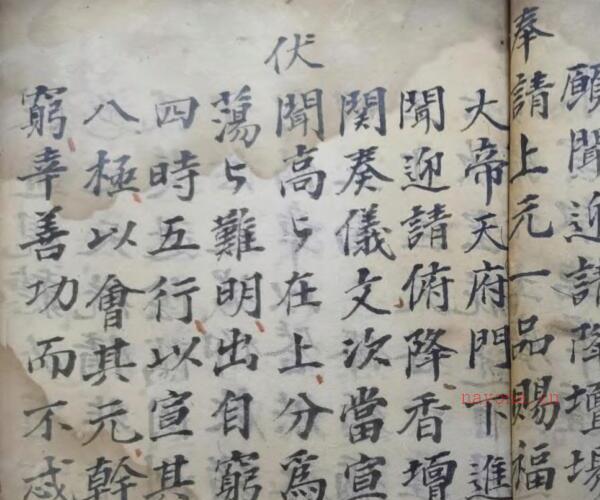 願聞迎請降壇場
奉請上元一品賜福
大帝天府門下進
聞迎請俯降香壇
関奏儀文次當宣
伏
聞高〻在上分為
蕩〻難明出自窮
四時五行以宣其
八極以會其元幹
窮幸善功而不忒